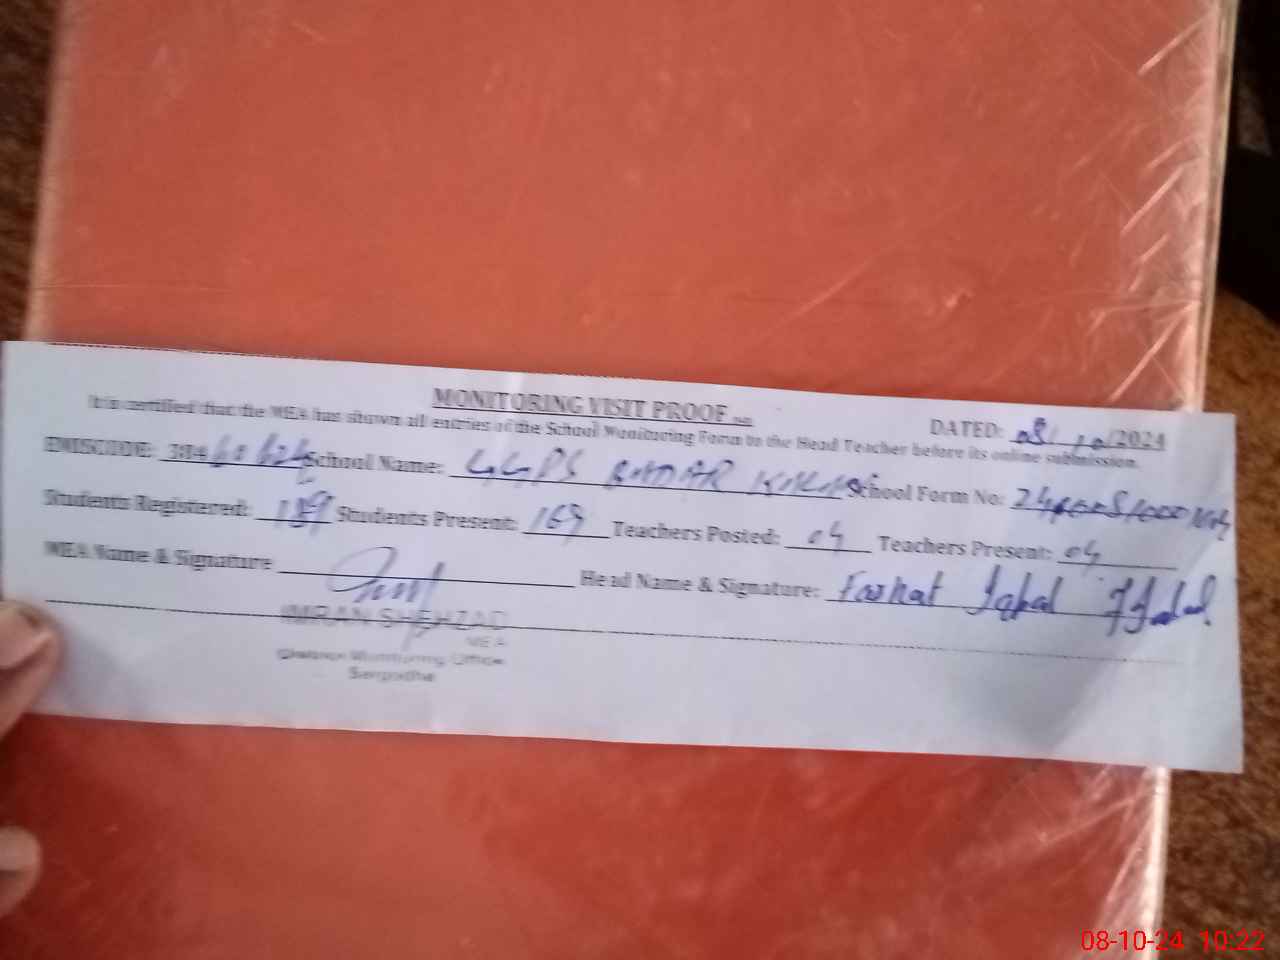 MONITORING VISIT PROOF
DATED: 08/10/2024
It is certified that the MEA has shown all entries of the School Monitoring Form to the Head Teacher before its online submission.
EMISCODE: 384 School Name: GGPS School Form No:
Students Registered: 189 Students Present: 169 Teachers Posted: 04 Teachers Present: 04
MEA Name & Signature Head Name & Signature: Farhat Iqbal
IMRAN SHEHZAD
MEA
District Monitoring Office
Sargodha
08-10-24 10:22